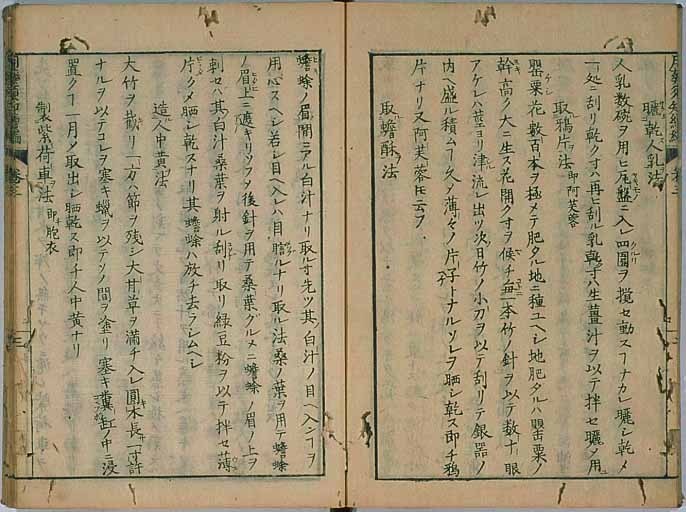 曬乾人乳法
人乳数碗ヲ用ヒ瓦盤ニ入レ四圍ヲ攪セ動スヿナカレ曬シ乾メ
一処ニ刮リ乾クオハ再ヒ刮ル乳乾オハ生薑汁ヲ以テ拌セ曬メ用
取鴉片法 即阿芙蓉
罌粟花数百本ヲ極メテ肥タル地ニ種ユヘシ地肥タルハ罌粟ノ
幹高ク大ニ生ス花開クオヲ候チ毎一本竹ノ針ヲ以テ数十眼
アケレハ莖ヨリ津流レ出ツ次日竹ノ小刀ヲ以テ刮リテ銀器ノ
内ヘ盛ル積ムヿ久メ薄キノ片子トナルソレヲ晒シ乾ス即チ鴉
片ナリ又阿芙蓉トモ云フ
取蟾酥法
蟾蜍ノ眉間ニアル白汁ナリ取ルオ先ツ其白汁ノ目ヘ入シヿヲ
用心スヘシ若シ目ヘ入レハ目瞎ルナリ取ル法桑ノ葉ヲ用テ蟾蜍
ノ眉上ニ遮キリソフタ後針ヲ用テ桑葉グルメニ蟾蜍ノ眉ノ上ヲ
刺セハ其白汁桑葉ヲ射ル刮リ取リ緑豆粉ヲ以テ拌セ薄
片クメ晒シ乾スナリ其蟾蜍ハ放チ去ラシムヘシ
造人中黄法
大竹ヲ截リ一方ハ節ヲ残シ大甘草ヲ満チ入レ圓木長一寸許
ナルヲ以テコレヲ塞キ蝋ヲ以テソノ間ヲ塗リ塞キ糞缸ノ中ニ浸
置クヿ一月メ取出シ晒乾ス即チ人中黄ナリ
製紫荷車法 即胞衣